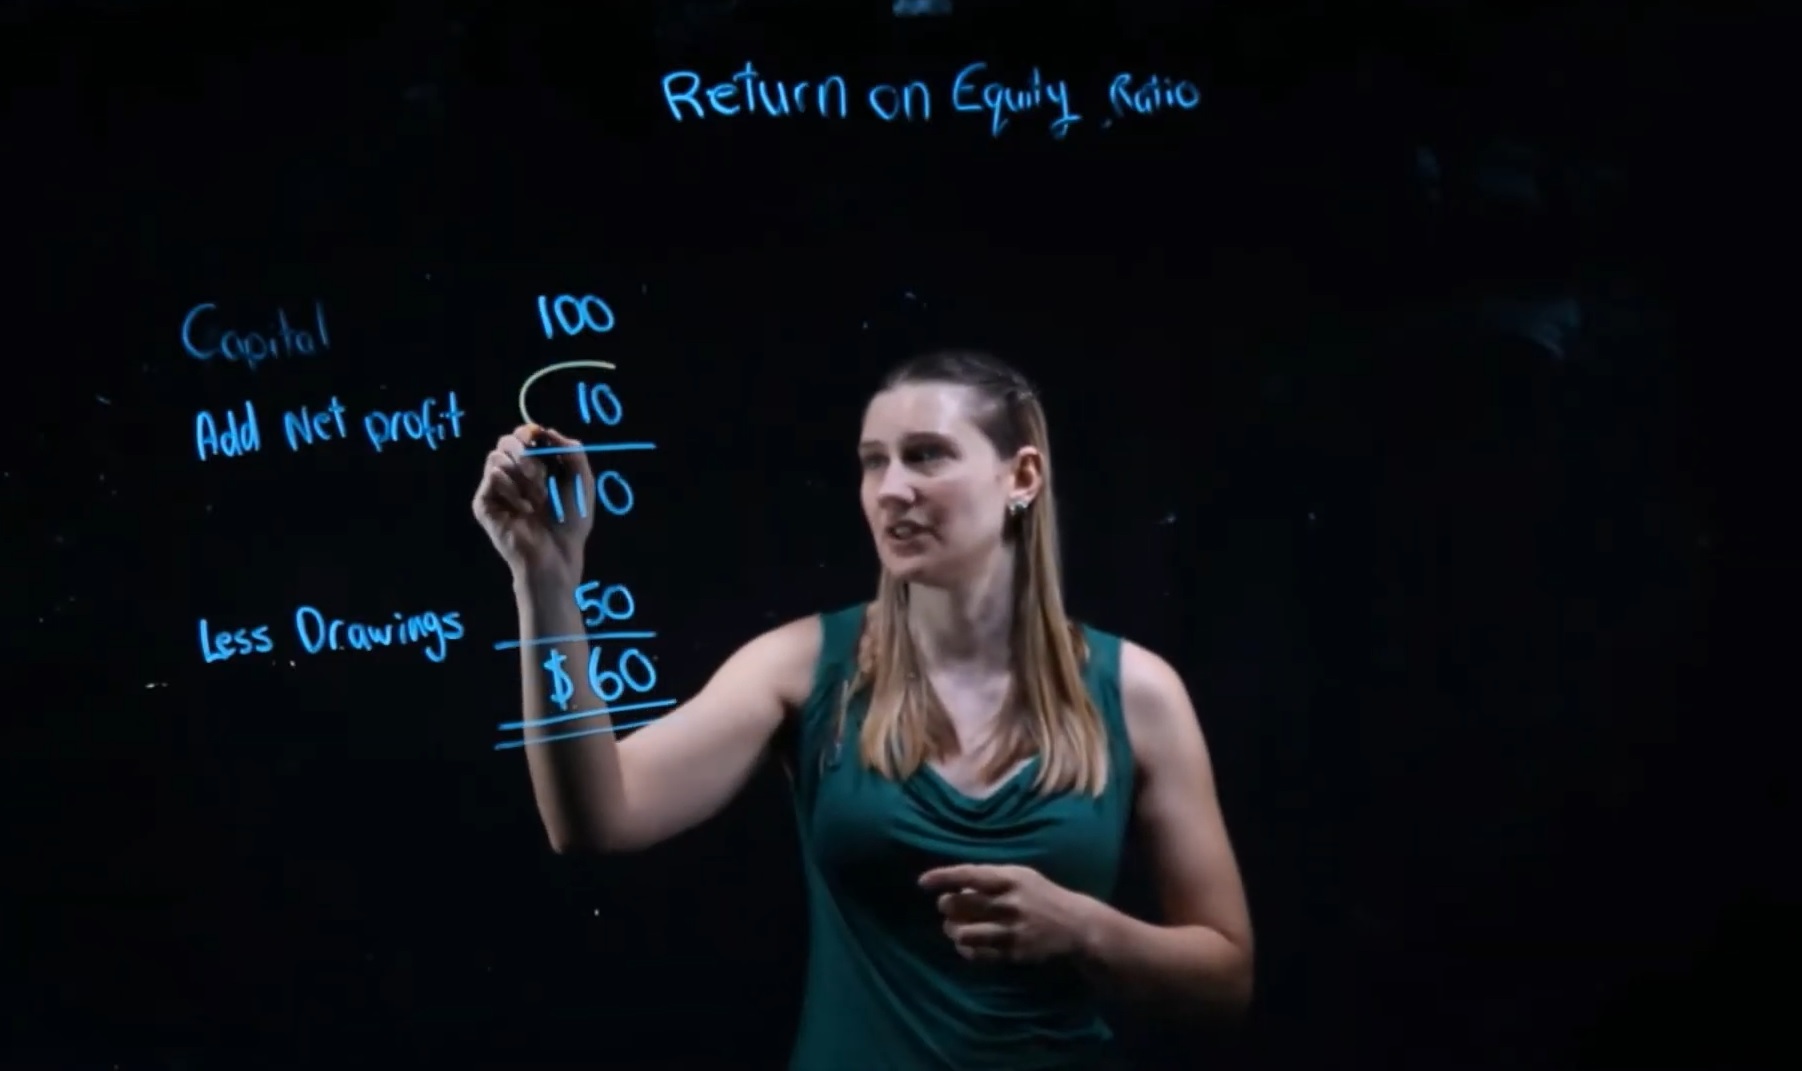 Return on Equity Ratio
Capital 100
Add Net profit 10
110
Less Drawings 50
$60